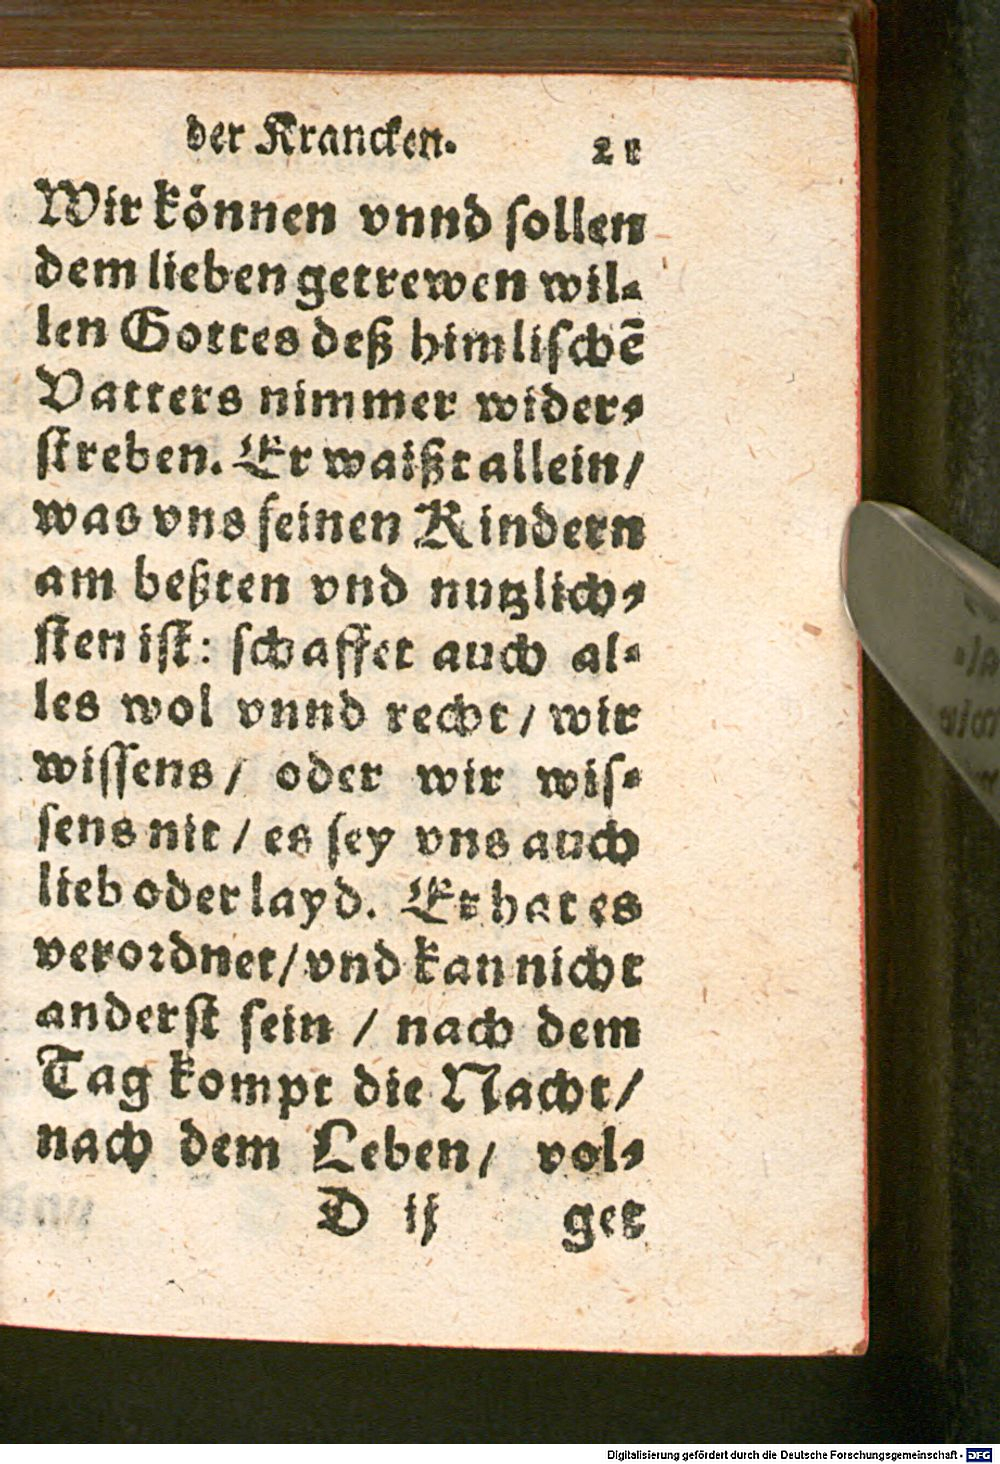 der Krancken. 21
Wir können vnnd sollen
dem lieben getrewen wil⸗
len Gottes deß himlischē
Vatters nimmer wider⸗
streben. Er waißt allein/
was vns seinen Kindern
am beßten vnd nutzlich⸗
sten ist: schaffet auch al⸗
les wol vnnd recht/ wir
wissens/ oder wir wis⸗
sens nit/ es sey vns auch
lieb oder layd. Er hat es
verordnet/ vnd kan nicht
anderst sein / nach dem
Tag kompt die Nacht/
nach dem Leben/ vol⸗
D ij get
Digitalisierung gefördert durch die Deutsche Forschungsgemeinschaft - DFG